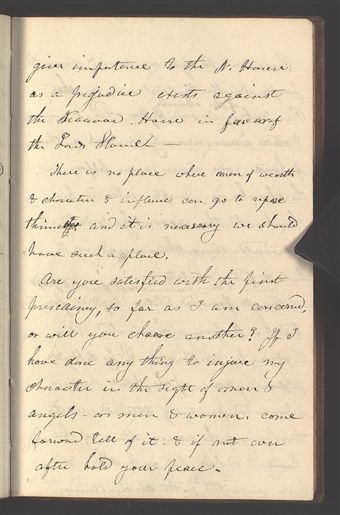 give impetence to the N. House.
as a prejudice exists against
the Nauvoo. House in favor of
the Lords House —
There is no place where men of wealth
& character & influence can go to repose
themselves and it is necessary we should
have such a place.
Are you satisfied with the first
presidincy, so far as I am concerned,
or will you choose another? If I
have done any thing to injure my
character in the sight of men &
angels— or men & women. come
forward tell of it. & if not ever
after hold your peace.